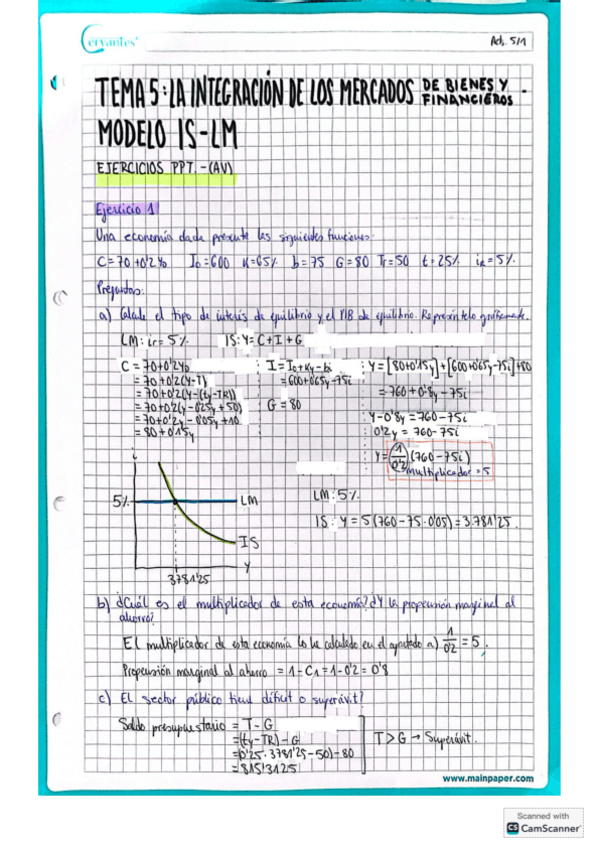 Cervantes
Act. 5/1
TEMA 5: LA INTEGRACIÓN DE LOS MERCADOS DE BIENES Y FINANCIEROS.
MODELO IS-LM
EJERCICIOS PPT.-(AV)
Ejercicio 1
Una economía dada presenta las siguientes funciones:
C=70+0'2Yo I0=600 K=65% b=75 G=80 Tr=50 t=25% ir=5%
Preguntas:
a) Calcule el tipo de interés de equilibrio y el PIB de equilibrio. Represéntelo gráficamente.
LM: ir=5% IS: Y=C+I+G
C = 70+0'2Yo
= 70+0'2(Y-T)
= 70+0'2(Y-(ty-TR))
= 70+0'2(y-0'25y+50)
= 70+0'2y-0'05y+10
= 80+0'15y
I = I0+Ky-bi
= 600+0'65y-75i
G = 80
Y=[80+0'15y]+[600+0'65y-75i]+80
= 760+0'8y-75i
Y-0'8y=760-75i
0'2y = 760-75i
Y= 1/0'2 (760-75i)
multiplicador = 5
i
5%
LM
IS
Y
3781'25
LM: 5%
IS: Y = 5(760-75·0'05) = 3.781'25
b) ¿Cuál es el multiplicador de esta economía? ¿Y la propensión marginal al
ahorro?
El multiplicador de esta economía lo he calculado en el apartado a) 1/0'2 = 5.
Propensión marginal al ahorro = 1-C1 = 1-0'2 = 0'8
c) El sector público tiene déficit o superávit?
Saldo presupuestario = T-G
=(ty-TR)-G
=(0'25·3781'25-50)-80
= 815'3125
T>G → Superávit.
www.mainpaper.com
Scanned with
CS CamScanner